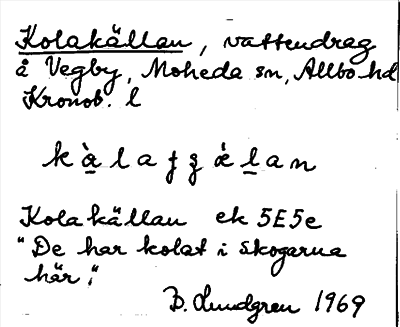 Kolakällan, vattendrag
å Vegby, Moheda sn, Allbo hd
Kronob. l
Kolakällan ek 5E5e
"De har kolat i skogarna
här."
B. Lundgren 1969